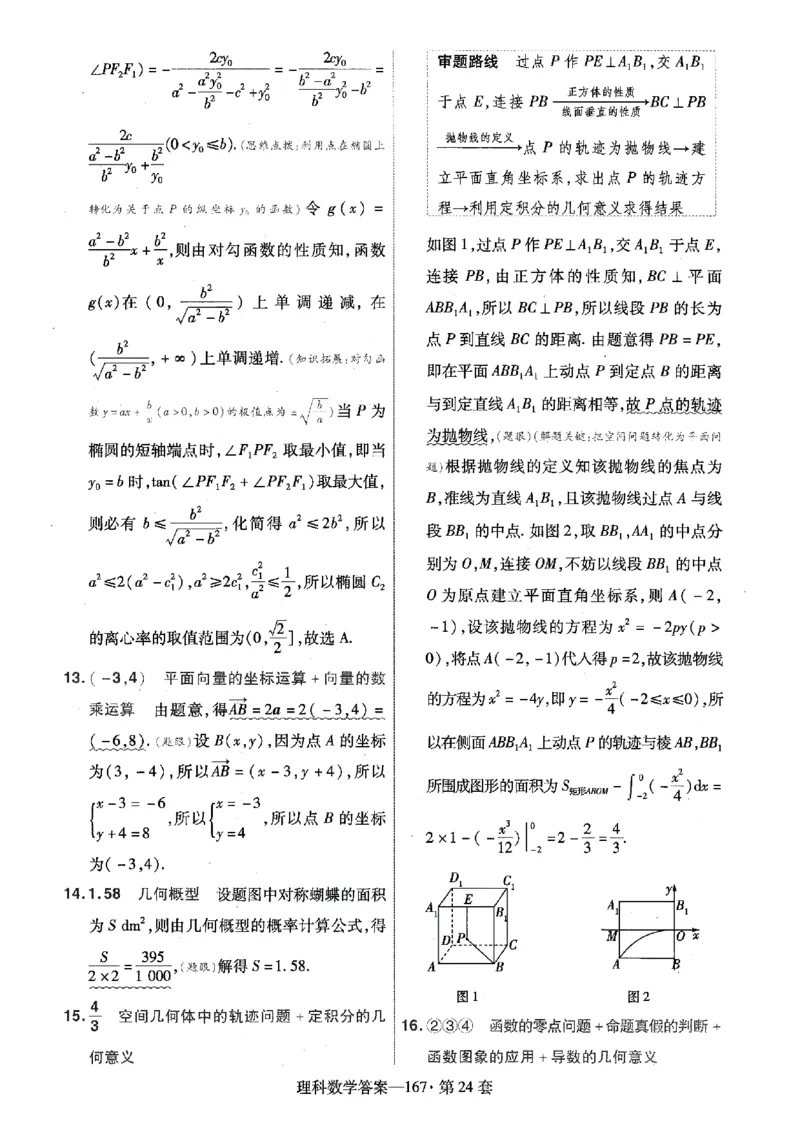 ∠PF₂F₁) = - 2cy₀/(a² - a²y₀²/b² - c² + y₀²) = - 2cy₀/((b²-a²)/b² y₀² - b²) =
2c/((a²-b²)/b² y₀ + b²/y₀) (0<y₀≤b).(思维点拨:利用点在椭圆上
转化为关于点 P 的纵坐标 y₀ 的函数)令 g(x) =
(a²-b²)/b² x + b²/x,则由对勾函数的性质知,函数
g(x)在 (0, b²/√(a²-b²)) 上单调递减,在
(b²/√(a²-b²), +∞)上单调递增.(知识拓展:对勾函
数 y=ax+b/x(a>0,b>0)的极值点为±√(b/a))当 P 为
椭圆的短轴端点时,∠F₁PF₂ 取最小值,即当
y₀=b 时,tan(∠PF₁F₂+∠PF₂F₁)取最大值,
则必有 b≤b²/√(a²-b²),化简得 a²≤2b²,所以
a²≤2(a²-c₁²),a²≥2c₁²,c₁²/a²≤1/2,所以椭圆 C₂
的离心率的取值范围为(0,√2/2],故选 A.
13.(-3,4) 平面向量的坐标运算+向量的数
乘运算 由题意,得AB→=2a=2(-3,4)=
(-6,8).(题眼)设 B(x,y),因为点 A 的坐标
为(3,-4),所以AB→=(x-3,y+4),所以
{x-3=-6 y+4=8,所以{x=-3 y=4,所以点 B 的坐标
为(-3,4).
14.1.58 几何概型 设题图中对称蝴蝶的面积
为 S dm²,则由几何概型的概率计算公式,得
S/(2×2)=395/1 000,(题眼)解得 S=1.58.
15.4/3 空间几何体中的轨迹问题+定积分的几
何意义
审题路线 过点 P 作 PE⊥A₁B₁,交 A₁B₁
于点 E,连接 PB 正方体的性质 线面垂直的性质→BC⊥PB
抛物线的定义→点 P 的轨迹为抛物线→建
立平面直角坐标系,求出点 P 的轨迹方
程→利用定积分的几何意义求得结果
如图 1,过点 P 作 PE⊥A₁B₁,交 A₁B₁ 于点 E,
连接 PB,由正方体的性质知,BC⊥平面
ABB₁A₁,所以 BC⊥PB,所以线段 PB 的长为
点 P 到直线 BC 的距离.由题意得 PB=PE,
即在平面 ABB₁A₁ 上动点 P 到定点 B 的距离
与到定直线 A₁B₁ 的距离相等,故 P 点的轨迹
为抛物线,(题眼)(解题关键:把空间问题转化为平面问
题)根据抛物线的定义知该抛物线的焦点为
B,准线为直线 A₁B₁,且该抛物线过点 A 与线
段 BB₁ 的中点.如图 2,取 BB₁,AA₁ 的中点分
别为 O,M,连接 OM,不妨以线段 BB₁ 的中点
O 为原点建立平面直角坐标系,则 A(-2,
-1),设该抛物线的方程为 x²=-2py(p>
0),将点 A(-2,-1)代入得 p=2,故该抛物线
的方程为 x²=-4y,即 y=-x²/4(-2≤x≤0),所
以在侧面 ABB₁A₁ 上动点 P 的轨迹与棱 AB,BB₁
所围成图形的面积为 S矩形ABOM - ∫₋₂⁰(-x²/4)dx=
2×1-(-x³/12)|₋₂⁰=2-2/3=4/3.
D₁ C₁
A₁ E B₁
D P C
A B
图 1
y
A₁ B₁
M O x
A B
图 2
16.②③④ 函数的零点问题+命题真假的判断+
函数图象的应用+导数的几何意义
理科数学答案—167·第 24 套